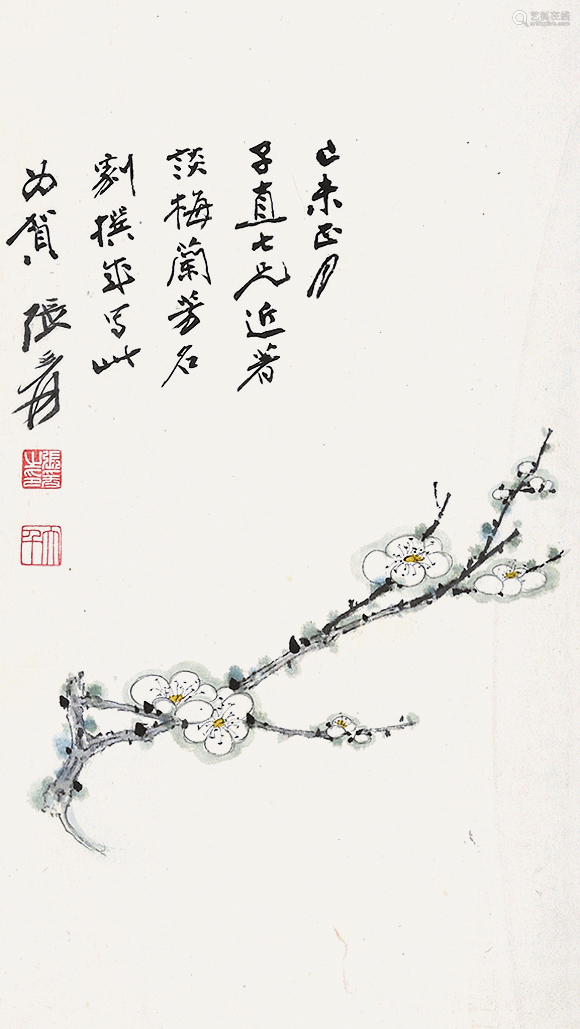 己未正月
子直七兄近著
談梅蘭芳名
劇撰成寫此
為賀 張爰
張爰之印
大千
艺狐在线